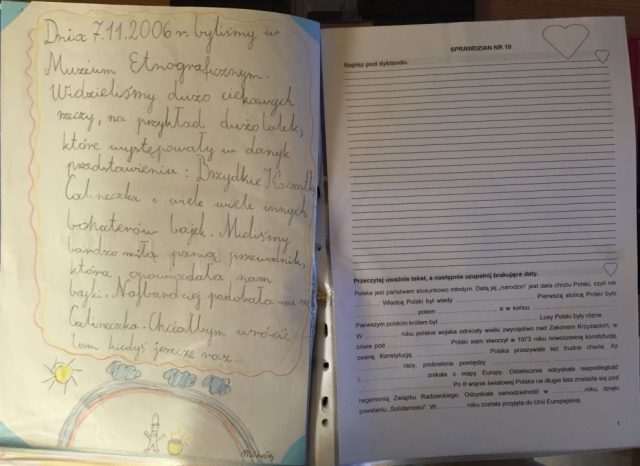 Dnia 7.11.2006 r. byliśmy w
Muzeum Etnograficznym.
Widzieliśmy dużo ciekawych
rzeczy, na przykład dużo lalek,
które występowały w danyk
przedstawieniu: Brzydkie Kaczątko
Calineczka i wiele wiele innych
bohaterów bajek. Mieliśmy
bardzo miłą panią przewodnik,
która opowiadała nam
bajki. Najbardziej podobała mi się
Calineczka. Chciałbym wrócić
tam kiedyś jeszcze raz.
Mikołaj
SPRAWDZIAN NR 10
Napisz pod dyktando.
Przeczytaj uważnie tekst, a następnie uzupełnij brakujące daty.
Polska jest państwem stosunkowo młodym. Datą jej „narodzin" jest data chrztu Polski, czyli rok
Władcą Polski był wtedy . Pierwszą stolicą Polski było
, potem , a w końcu
Pierwszym polskim królem był . Losy Polski były różne.
W roku polskie wojska odniosły wielkie zwycięstwo nad Zakonem Krzyżackim, w
bitwie pod . Polski sejm stworzył w 1973 roku nowoczesną konstytucję,
zwaną Konstytucją . Polska przeżywała też trudne chwile. Aż
razy, podzielona pomiędzy
i znikała z mapy Europy. Ostatecznie odzyskała niepodległość
. Po II wojnie światowej Polska na długie lata znalazła się pod
hegemonią Związku Radzieckiego. Odzyskała samodzielność w roku, dzięki
powstaniu „Solidarności". W roku została przyjęta do Unii Europejskiej.
1